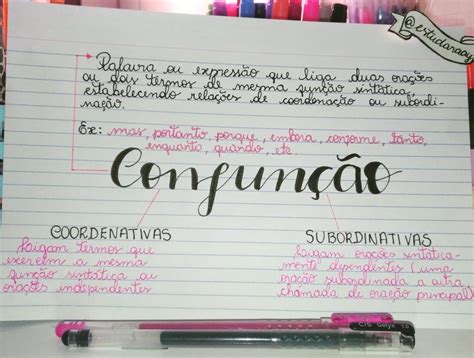 Palavra ou expressão que liga duas orações
ou dois termos de mesma função sintática,
estabelecendo relações de coordenação ou subordi-
nação.
Ex: mas, portanto, porque, embora, conforme, tanto,
enquanto, quando, etc.
Conjunção
COORDENATIVAS
Ligam termos que
exercem a mesma
função sintática ou
orações independentes
SUBORDINATIVAS
Ligam orações sintatica-
mente dependentes (uma
oração subordinada a outra
chamada de oração principal)
CIS